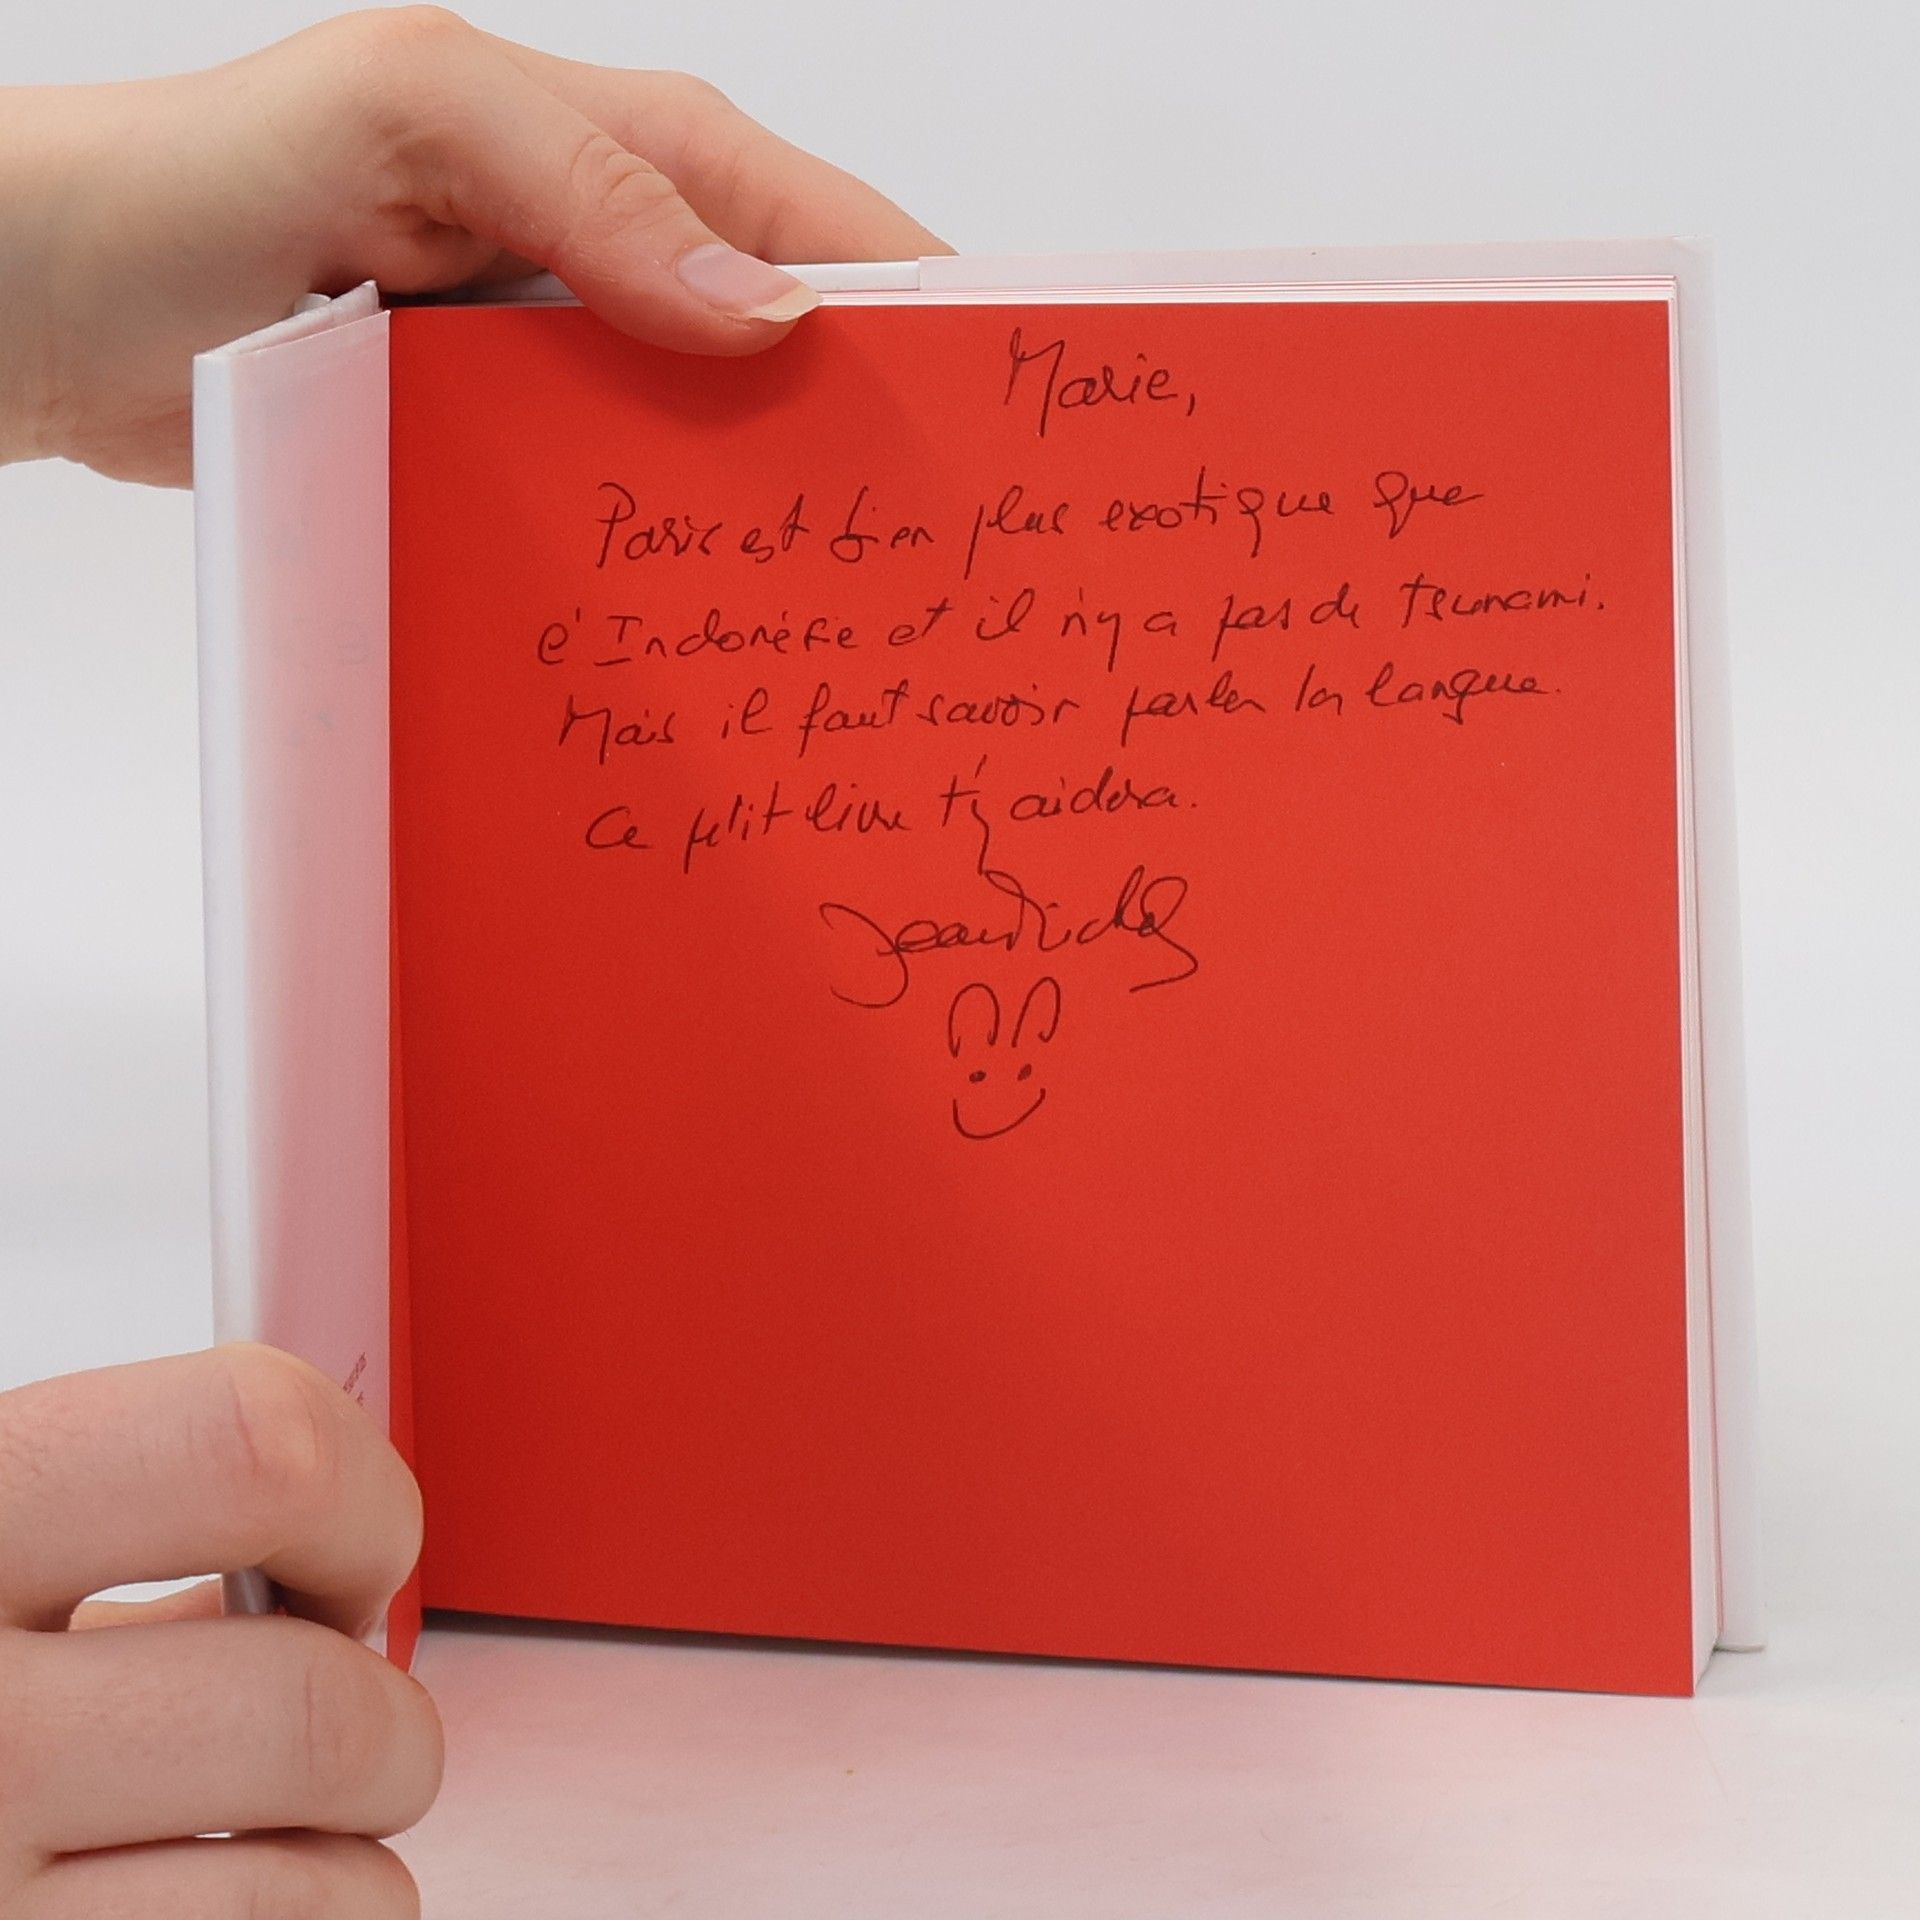 Marie,
Paris est bien plus exotique que
l'Indonésie et il n'y a pas de tsunami.
Mais il faut savoir parler la langue.
Ce petit livre t'y aidera.
Jean Michel